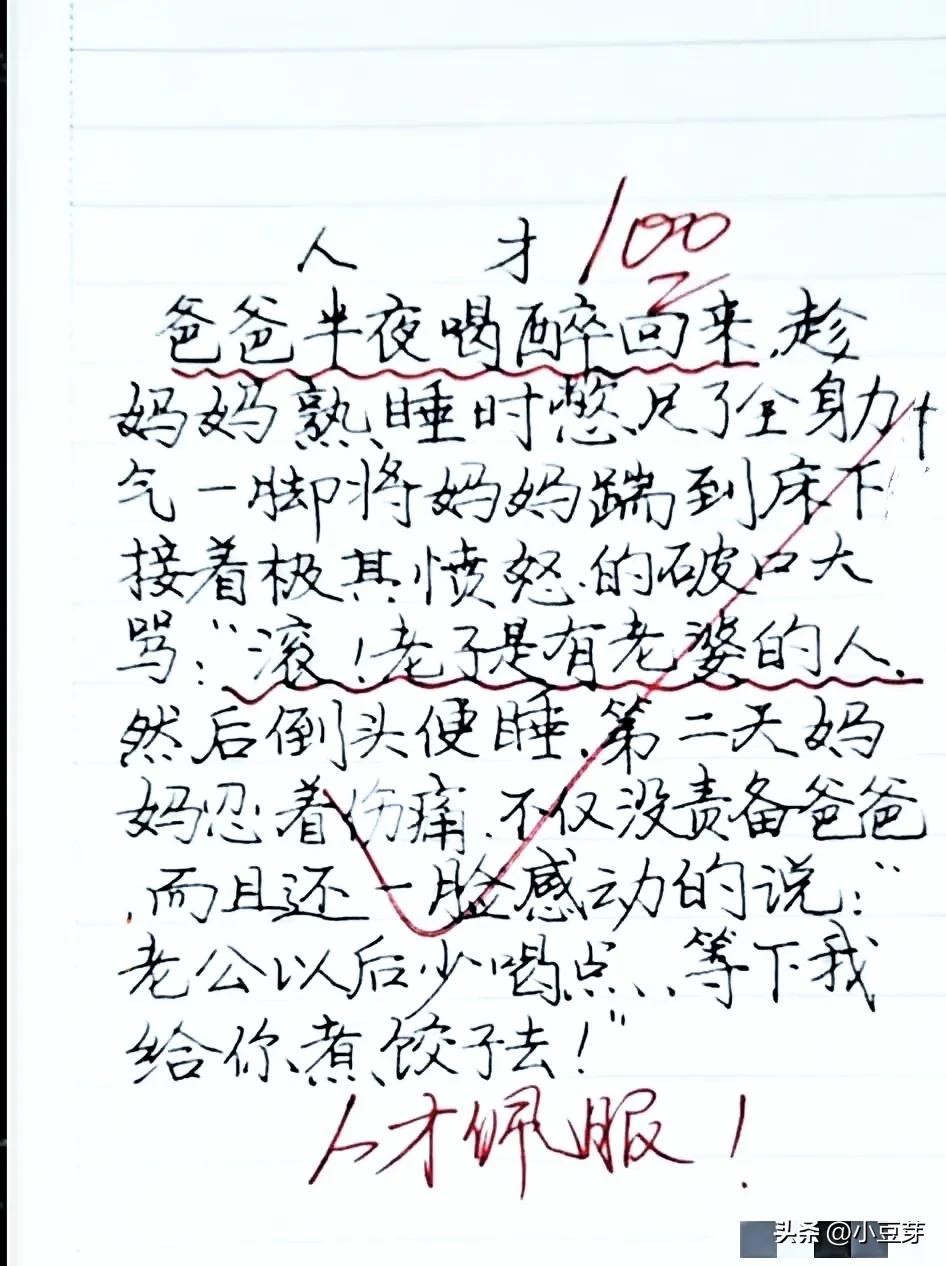 人 才 100
爸爸半夜喝醉回来,趁
妈妈熟睡时憋足了全身力
气一脚将妈妈踹到床下
接着极其愤怒的破口大
骂:“滚!老子是有老婆的人.
然后倒头便睡.第二天妈
妈忍着伤痛.不仅没责备爸爸
.而且还一脸感动的说:“
老公以后少喝点、、等下我
给你煮饺子去!”
人才佩服!
头条 @小豆芽